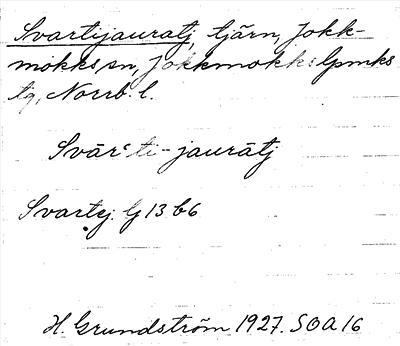 Svartijauratj, tjärn, Jokk-
mokks sn, Jokkmokks lpmks
tg, Norrb. l.
Svārʿti-jaurātj
Svartej. lg 13 b6
H. Grundström 1927. SOA 16